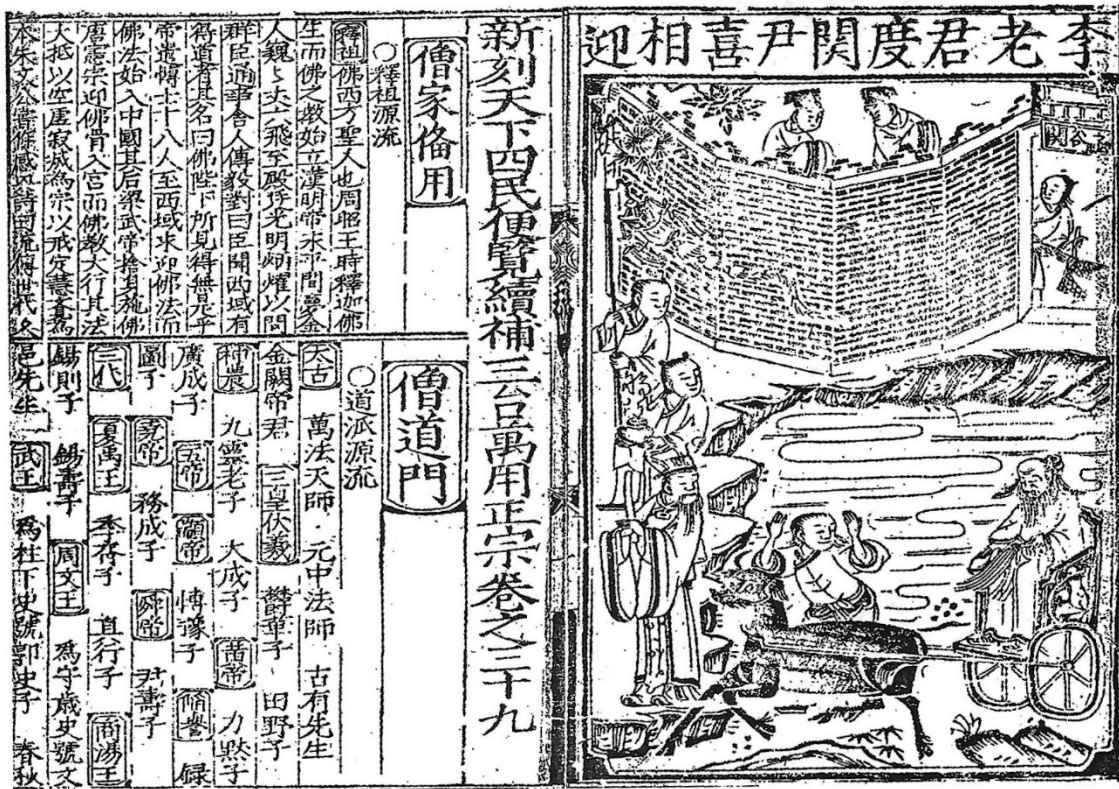 李老君度関尹喜相迎
谷関
新刻天下四民便覽續補三台萬用正宗卷之三十九
僧家俻用
○釋祖源流
釋祖佛西方聖人也周昭王時釋迦佛
生而佛之教始立漢明帝永平間夢金
人魏〻丈六飛至殿廷光明炯耀以問
群臣通事舍人傅毅對曰臣聞西域有
得道者其名曰佛陛下所見得無是乎
帝遣博士十八人至西域求迎佛法而
佛法始入中國其后梁武帝捨身施佛
唐憲宗迎佛骨入宮而佛教大行其法
大抵以空虛寂滅為宗以戒定慧為
本朱文公嘗條感詩曰流傳世代久
僧道門
○道派源流
太古 萬法天師 元中法師 古有先生
金闕帝君 三皇伏羲 欝華子 田野子
神農 九靈老子 大成子 黃帝 力黙子
廣成子 五帝 顓帝 豫子 嚳 録
圖子 堯帝 務成子 舜帝 尹壽子
三代 夏禹王 李存子 真行子 商湯王
錫則子 錫壽子 周文王 為守歲史號文
邑先生 武王 為柱下史號郭史子 春秋